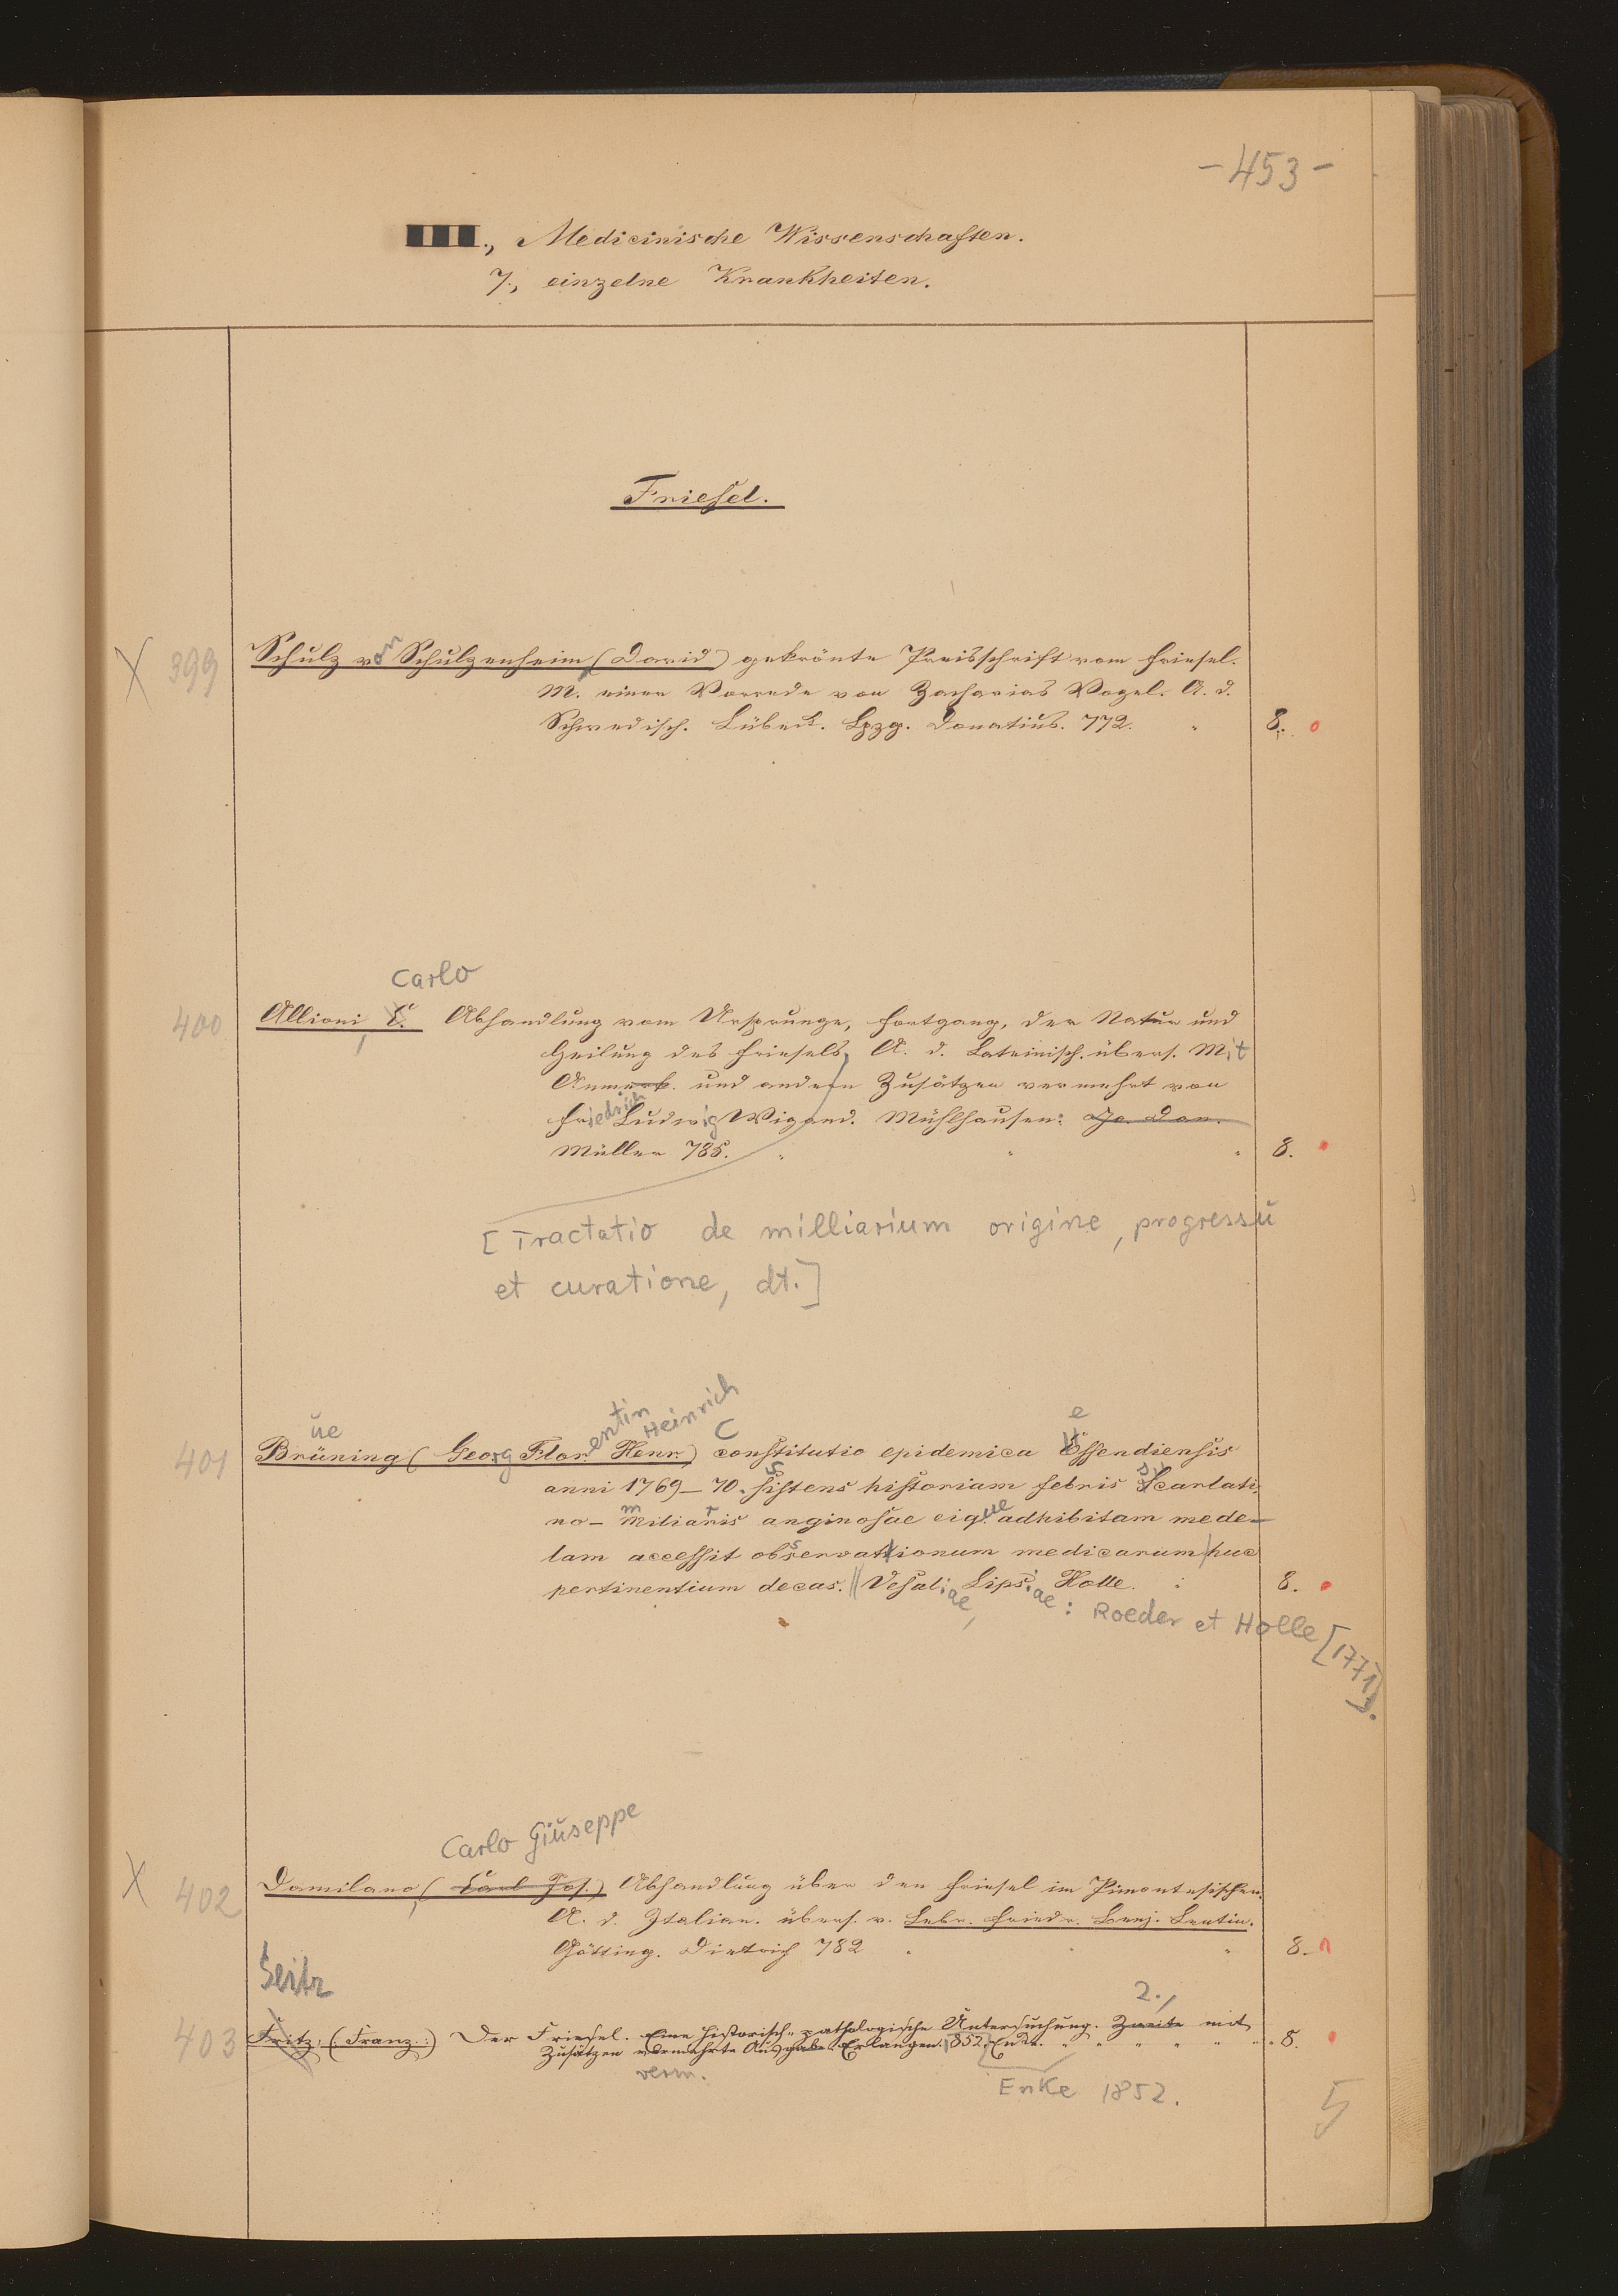 - 453 -
III., Medicinische Wissenschaften.
7., einzelne Krankheiten.
Friesel.
X 399 Schulz von Schulzenheim (David) gekrönte Preisschrift vom Friesel.
M. einer Vorrede von Zacharias Vogel. A. d.
Schwedisch. Lübeck. Lpzg. Donatius. 772. 8.
Carlo
400 Allioni, C. Abhandlung vom Ursprunge, Fortgang, der Natur und
Heilung des Friesels, A. d. Lateinisch. übers. Mit
Anmerk. und andern Zusätzen vermehrt von
Friedrich Ludwig Wigand. Mühlhausen: Jo. Dan.
Müller 785. 8.
[Tractatio de milliarium origine, progressu
et curatione, dt.]
üe entin Heinrich C e
401 Brüning (Georg Flor. Henr.) constitutio epidemica Essendiensis
anni 1769–70. sistens historiam febris Scarlati-
no-Miliaris anginosae eique adhibitam mede-
lam accessit observationum medicarum huc
pertinentium decas. Vesaliae, Lipsiae Holle. 8.
: Roeder et Holle [1771].
Carlo Giuseppe
X 402 Damilano, (Carl Jos.) Abhandlung über den Friesel im Pimontesischen.
A. d. Italien. übers. v. Lebr. Friedr. Benj. Lentin.
Götting. Dietrich 782 8.
Seitz
2.,
403 Fritz, (Franz.) Der Friesel. Eine historisch-pathologische Untersuchung. Zweite mit
Zusätzen vermehrte Ausgabe. Erlangen. 1852. Enke. 8.
verm.
Enke 1852.
5